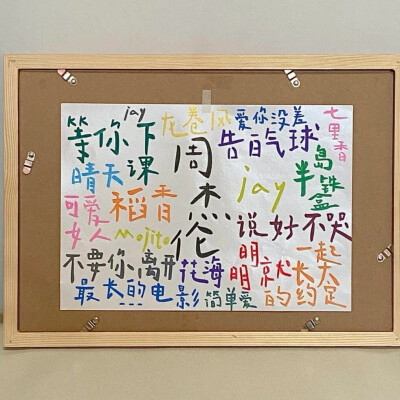 jay
等你下课
龙卷风
爱你没差
七里香
告白气球
周杰伦
晴天
稻香
jay
半岛铁盒
可爱女人
Mojito
说好不哭
不要你离开
花海
明明就
一起长大的约定
最长的电影
简单爱